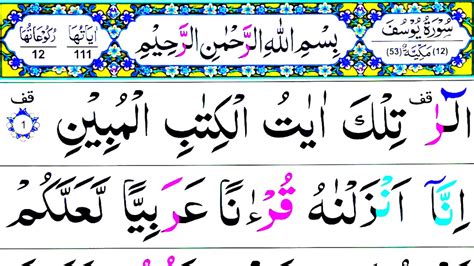 سُوْرَةُ يُوْسُفَ
(12) مَكِّيَّةٌ (53)
بِسْمِ اللهِ الرَّحْمٰنِ الرَّحِيْمِ
اٰيَاتُهَا 111
رُكُوْعَاتُهَا 12
الٓرٰ قف تِلْكَ اٰيٰتُ الْكِتٰبِ الْمُبِيْنِ قف ١
اِنَّاۤ اَنْزَلْنٰهُ قُرْءٰنًا عَرَبِيًّا لَّعَلَّكُمْ